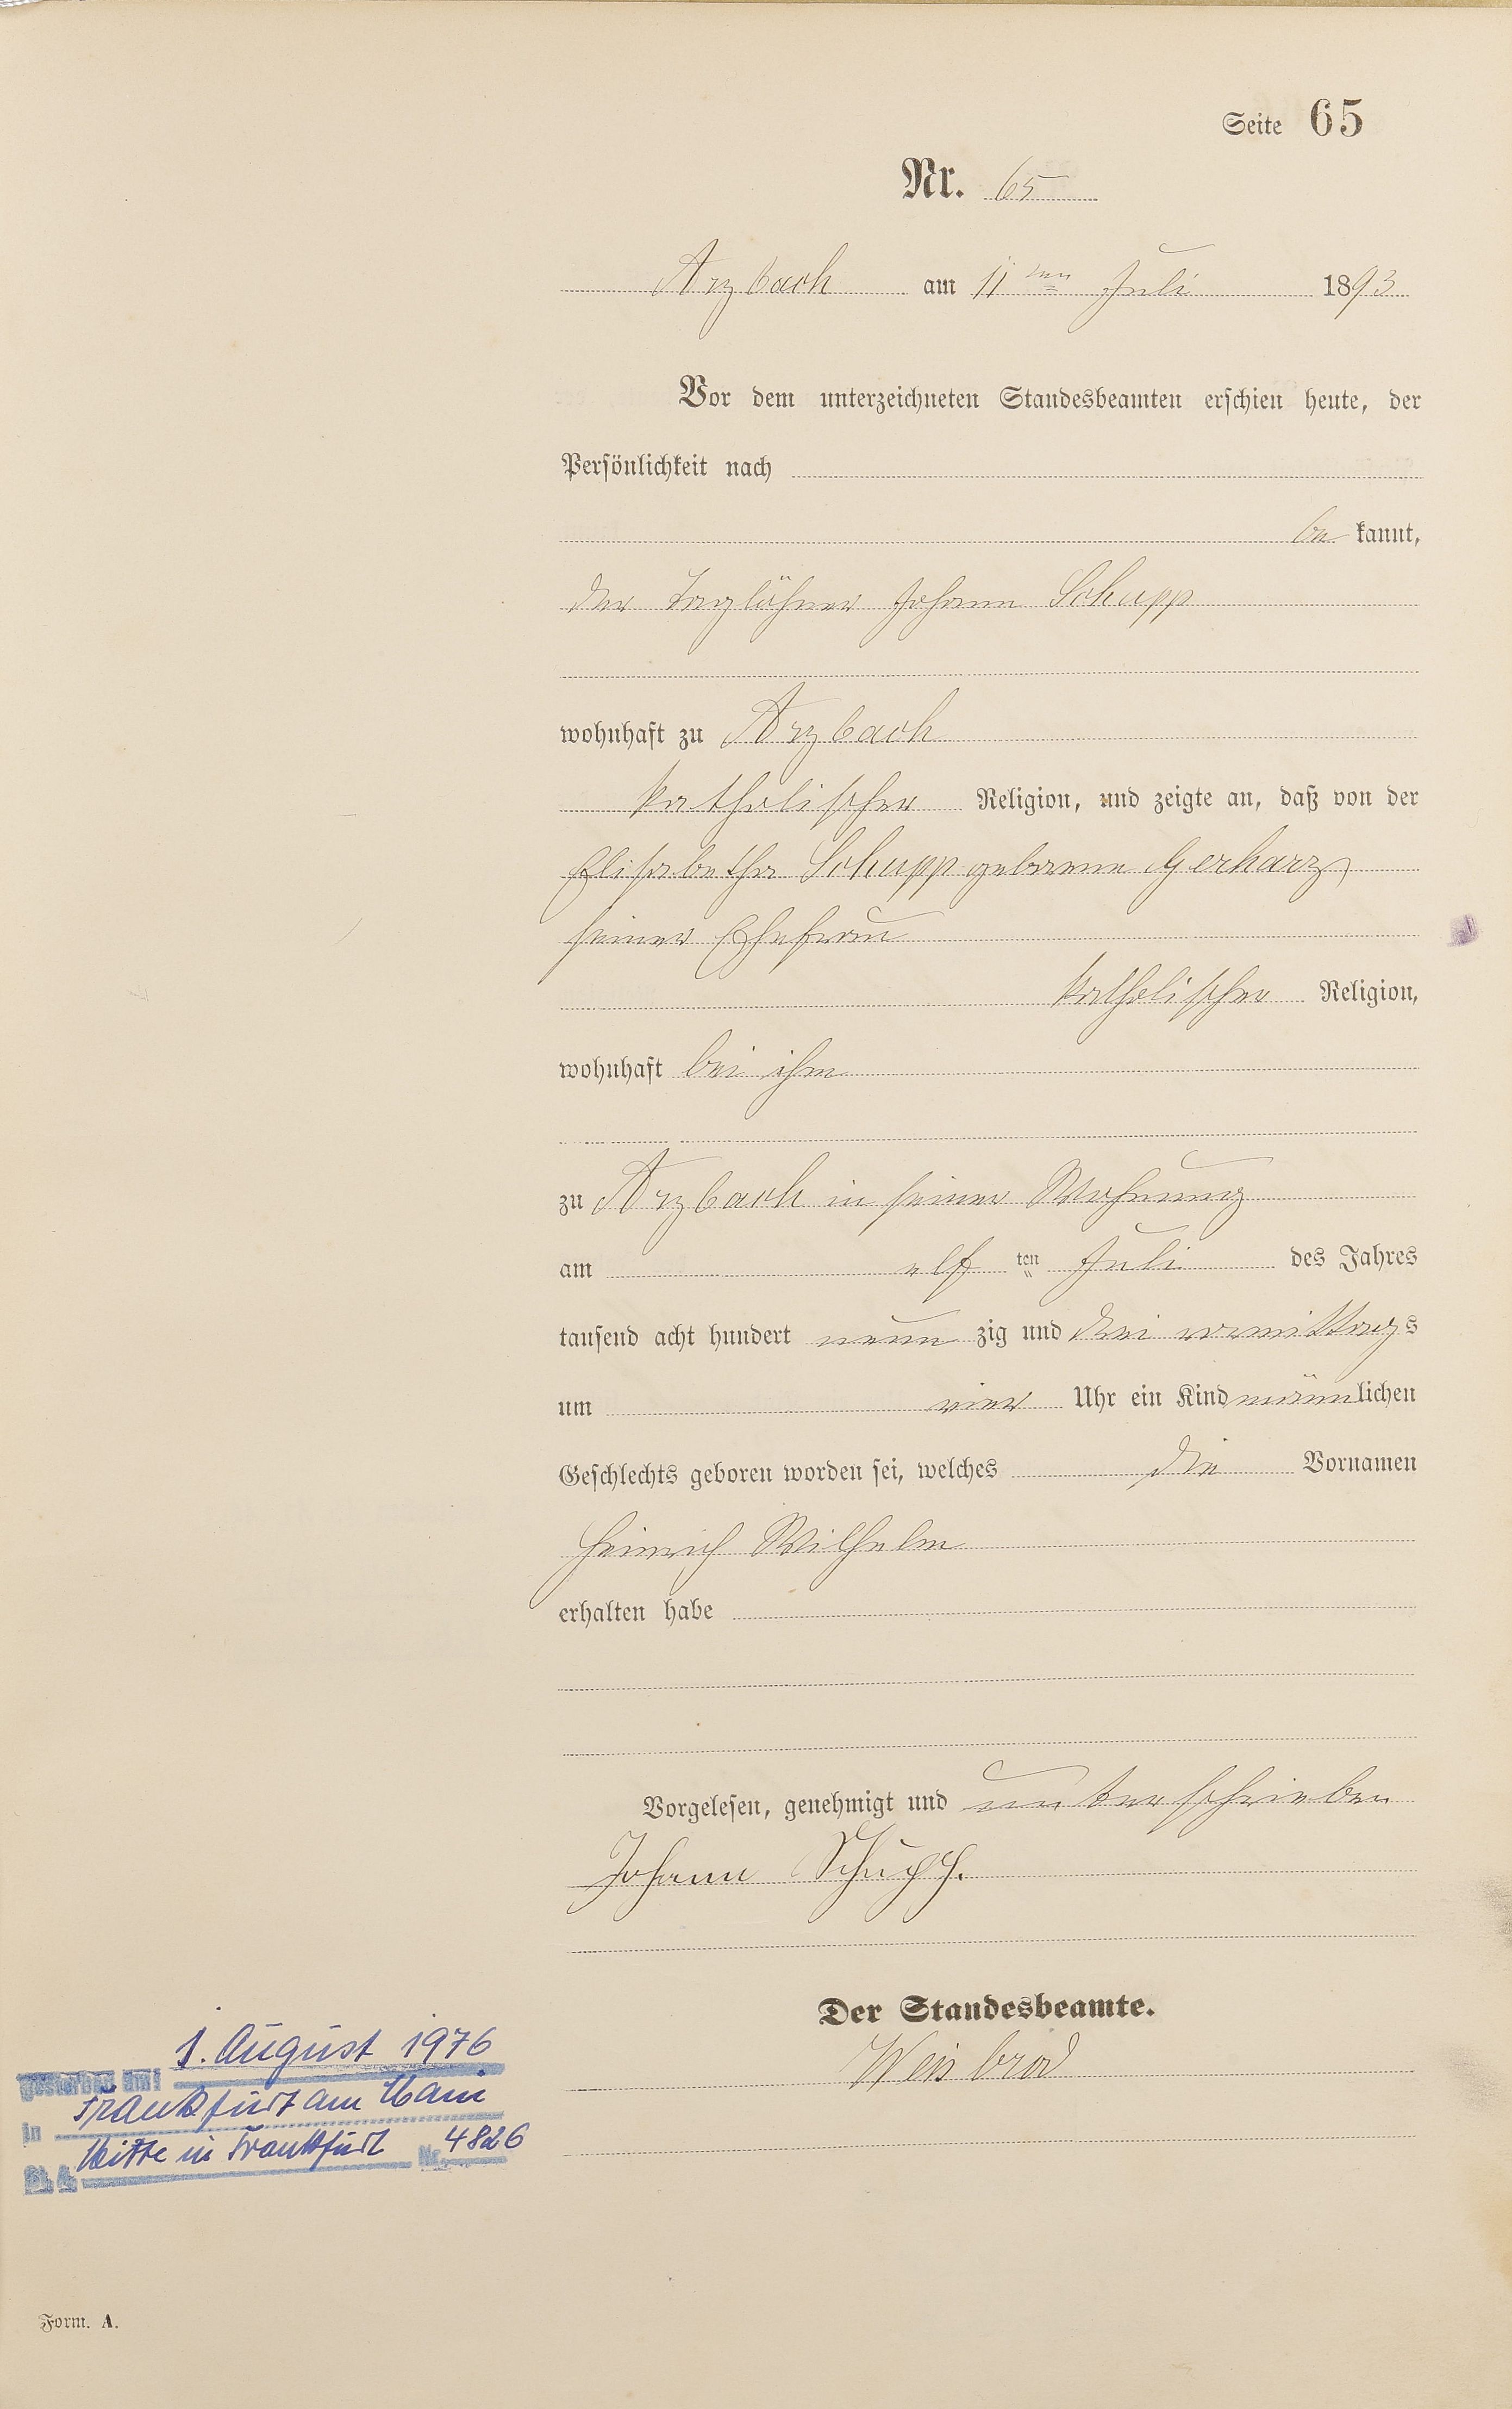 Seite 65
Nr. 65
Arzbach am 11ten Juli 1893
Vor dem unterzeichneten Standesbeamten erschien heute, der
Persönlichkeit nach
be kannt,
der Taglöhner Johann Schupp
wohnhaft zu Arzbach
katholischer Religion, und zeigte an, daß von der
Elisabetha Schupp geborene Gerharz
seiner Ehefrau
katholischer Religion,
wohnhaft bei ihm
zu Arzbach in seiner Wohnung
am elf ten Juli des Jahres
tausend acht hundert neun zig und drei vormittags
um vier Uhr ein Kind männlichen
Geschlechts geboren worden sei, welches die Vornamen
Heinrich Wilhelm
erhalten habe
Vorgelesen, genehmigt und unterschrieben
Johann Schupp.
Der Standesbeamte.
Weisbrod
gestorben am 1. August 1976
in Frankfurt am Main
St. A. Mitte in Frankfurt Nr. 4826
Form. A.